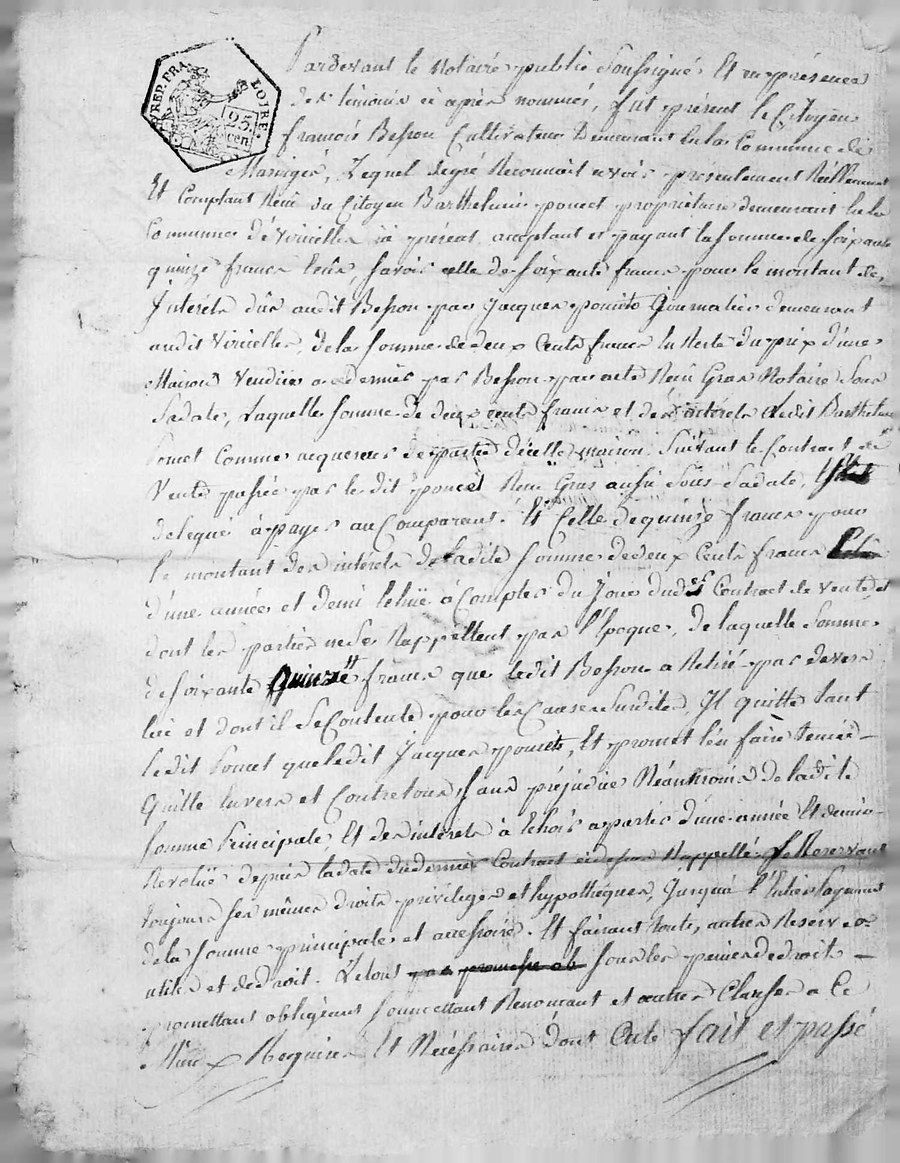 REP. FRA. LOIRE
25 cen
Pardevant le Notaire public Soussigné Et en présence
des témoins ci après nommés, fut présent le Citoyen
francois Besson Cultivateur Demeurant en la Commune de
Maringes, Lequel degré Reconnoit avoir presentement Réellement
Et Comptant Reçu du Citoyen Barthelmie poncet propriétaire demeurant en la
Commune de Viricelles ici présent, acceptant et payant la somme de soixante
quinze francs, savoir celle de soixante francs pour le montant de
Interets dûs audit Besson par Jacques poncet Journalier demeurant
audit Viricelles, de la somme de deux Cents francs En Reste du prix d'une
Maison Vendue a ce dernier par Besson par acte Reçu Gras Notaire Sous
Sa date, Laquelle somme de deux cents francs et des intérets Ledit Barthelmie
Poncet Comme acquereur de partie d'icelle maison Suivant le Contract de
Vente passée par ledit poncet Reçu Gras aussi Sous Sa date,
delegué à payer au Comparant. Et Celle de quinze francs pour
le montant des intérets de ladite somme de deux Cents francs
d'une année et demi Echüe à Compter du Jour dud Contract de Vente et
dont les parties ne se Rappellent pas l'Epoque, de laquelle Somme
de soixante quinze francs que ledit Besson a Retiré par devers
lui et dont il se Contente pour les Causes Susdites, Il quitte tant
ledit Poncet que ledit Jacques poncet, Et promet l'en faire tenir
Quitte Envers et Contre tous, sans préjudice Néantmoins de ladite
Somme Principale, Et des intérets à Echoir a partir d'une année Et demie
Revolüe depuis la date du dernier Contract ci dessus Rappellé, se Reservant
toujours ses mêmes droits privileges et hypothèques, Jusqu'à l'Entier payement
de la somme principale et accessoire. Et faisant toute, autres Reserves
utiles et de droit. Le tout par promesse ob sous les peines de droit
promettant obligeant soumettant Renoncant et autres Clauses a Ce
Requises Et Nécessaires dont Acte fait et passé